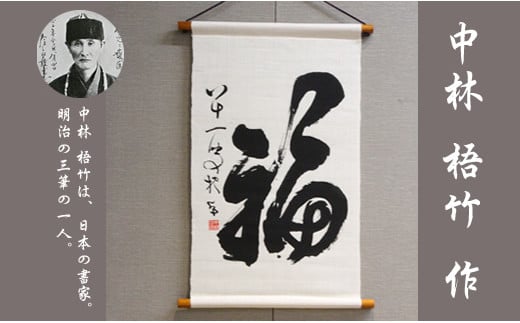 中林 梧竹 作
福
中林 梧竹は、日本の書家。
明治の三筆の一人。